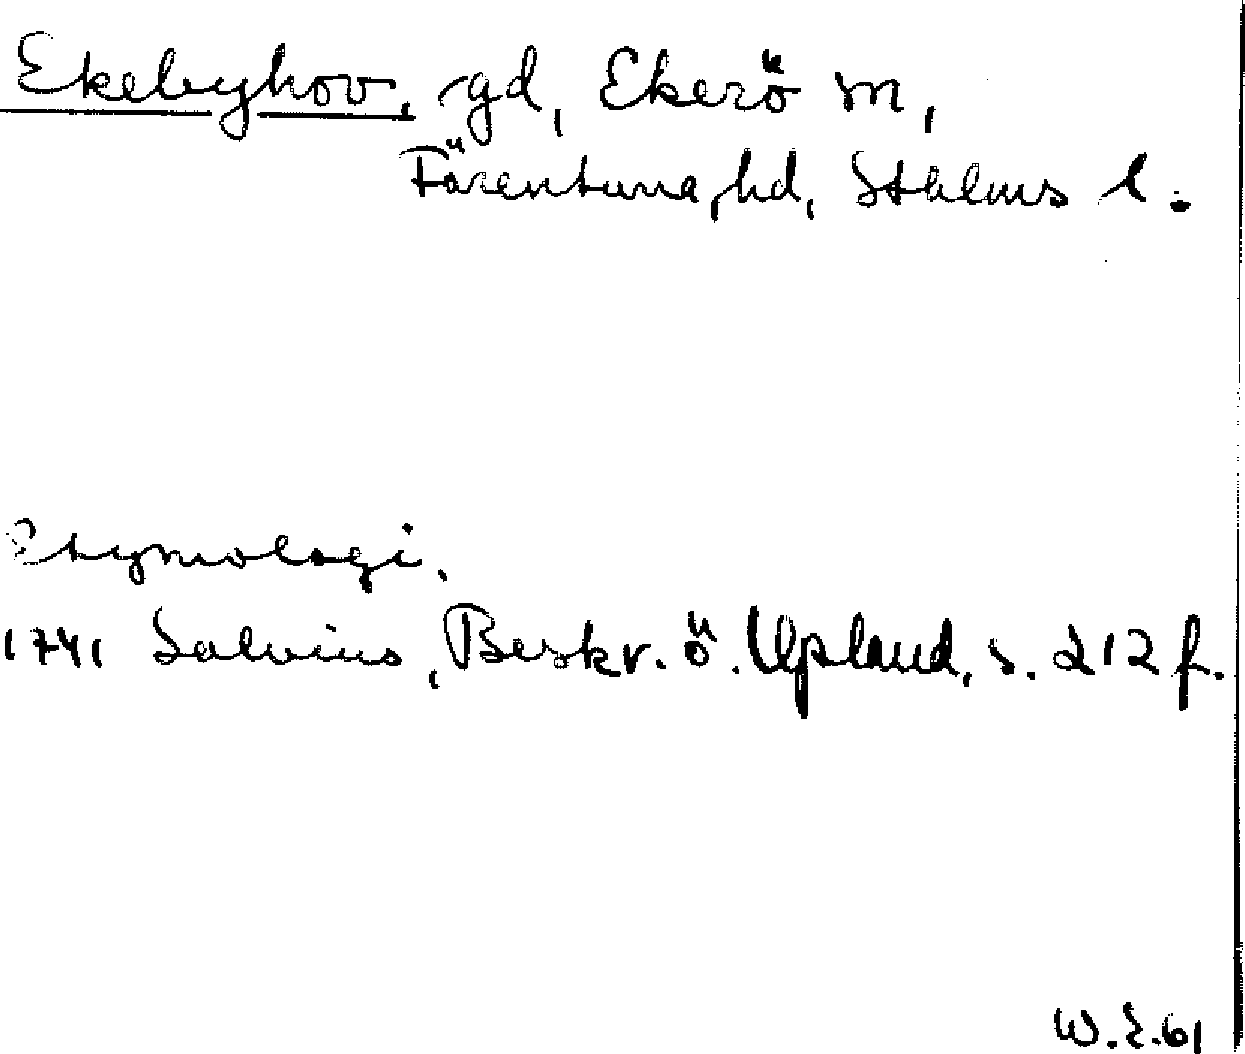 Ekebyhov, -gd, Ekerö sn,
Färentuna hd, Sthlms l.
Etymologi.
1741 Salvius, Beskr. ö. Upland, s. 212 f.
W.E.61